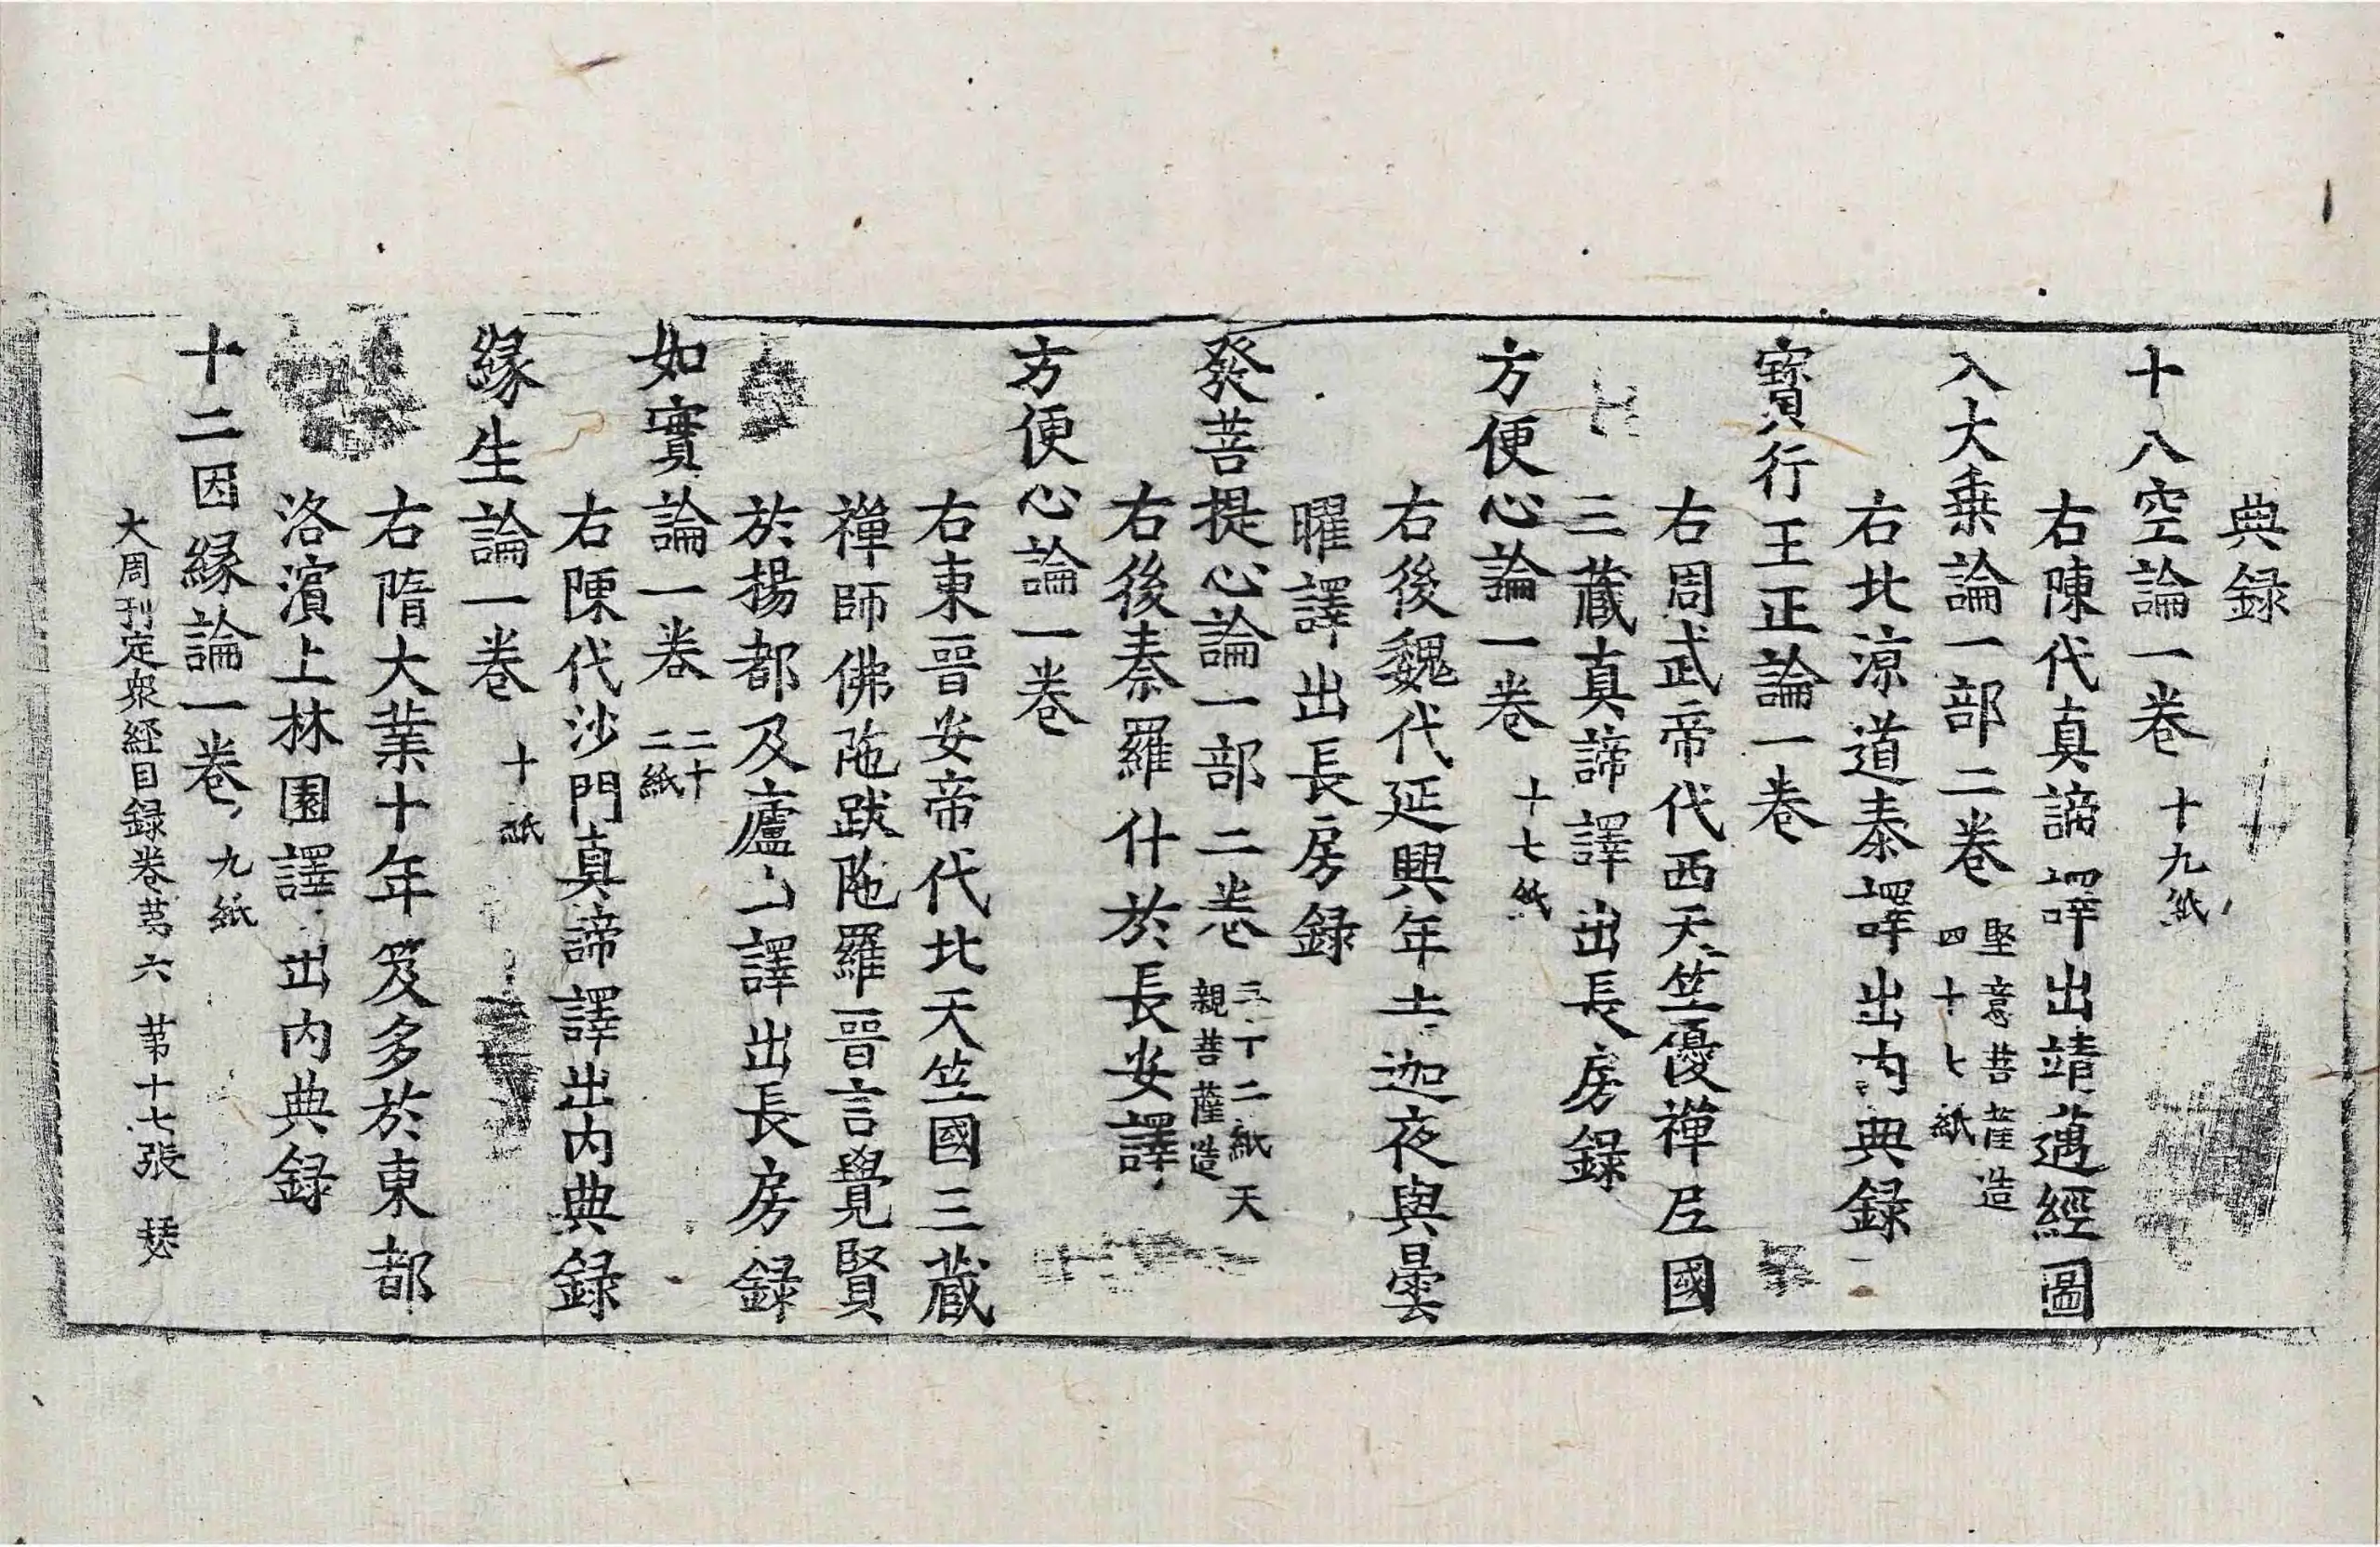 典録
十八空論一卷 十九紙
右陳代真諦譯出靖邁經圖
入大乗論一部二卷 堅意菩薩造 四十七紙
右北涼道泰譯出内典録
寶行王正論一卷
右周武帝代西天竺優禪尼國
三蔵真諦譯出長房録
方便心論一卷 十七紙
右後魏代延興年 迦夜與曇
曜譯出長房録
發菩提心論一部二卷 三十二紙天 親菩薩造
右後秦羅什於長安譯
方便心論一卷
右東晉安帝代北天竺國三蔵
禪師佛陁跋陁羅晉言覺賢
於揚都及廬山譯出長房録
如實論一卷 二十 二紙
右陳代沙門真諦譯出内典録
縁生論一卷 十紙
右隋大業十年笈多於東都
洛濱上林園譯出内典録
十二因縁論一卷 九紙
大周刊定衆經目録卷苐六 苐十七張